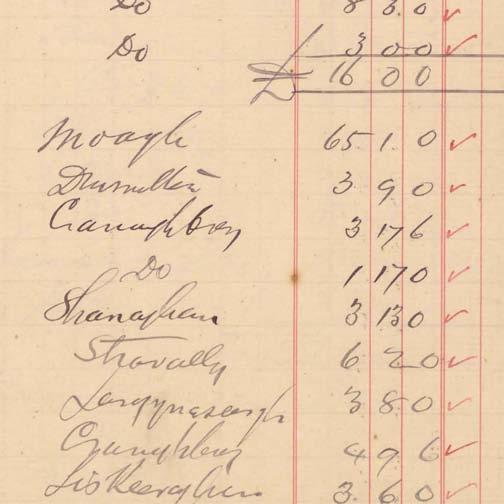 Do 8 3 0 ✓
Do 3 0 0 ✓
£ 16 0 0
Moagh 65 1 0 ✓
3 9 0 ✓
Cranaghboy 3 17 6 ✓
Do 1 17 0 ✓
Shanaghan 3 13 0 ✓
Stravally 6 2 0 ✓
3 8 0 ✓
4 9 6 ✓
Liskeeraghan 3 6 0 ✓